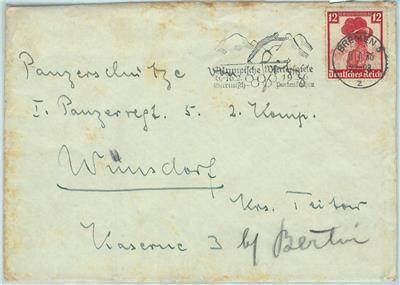 12 12
Deutsches Reich
BREMEN 5
2
Olympische Winterspiele
6.-16.2. 1936
Garmisch- Partenkirchen
Panzerschütze
I. Panzerregt. 5. 2. Komp.
Wünsdorf
Krs. Teltow
Kaserne 3 b/ Berlin